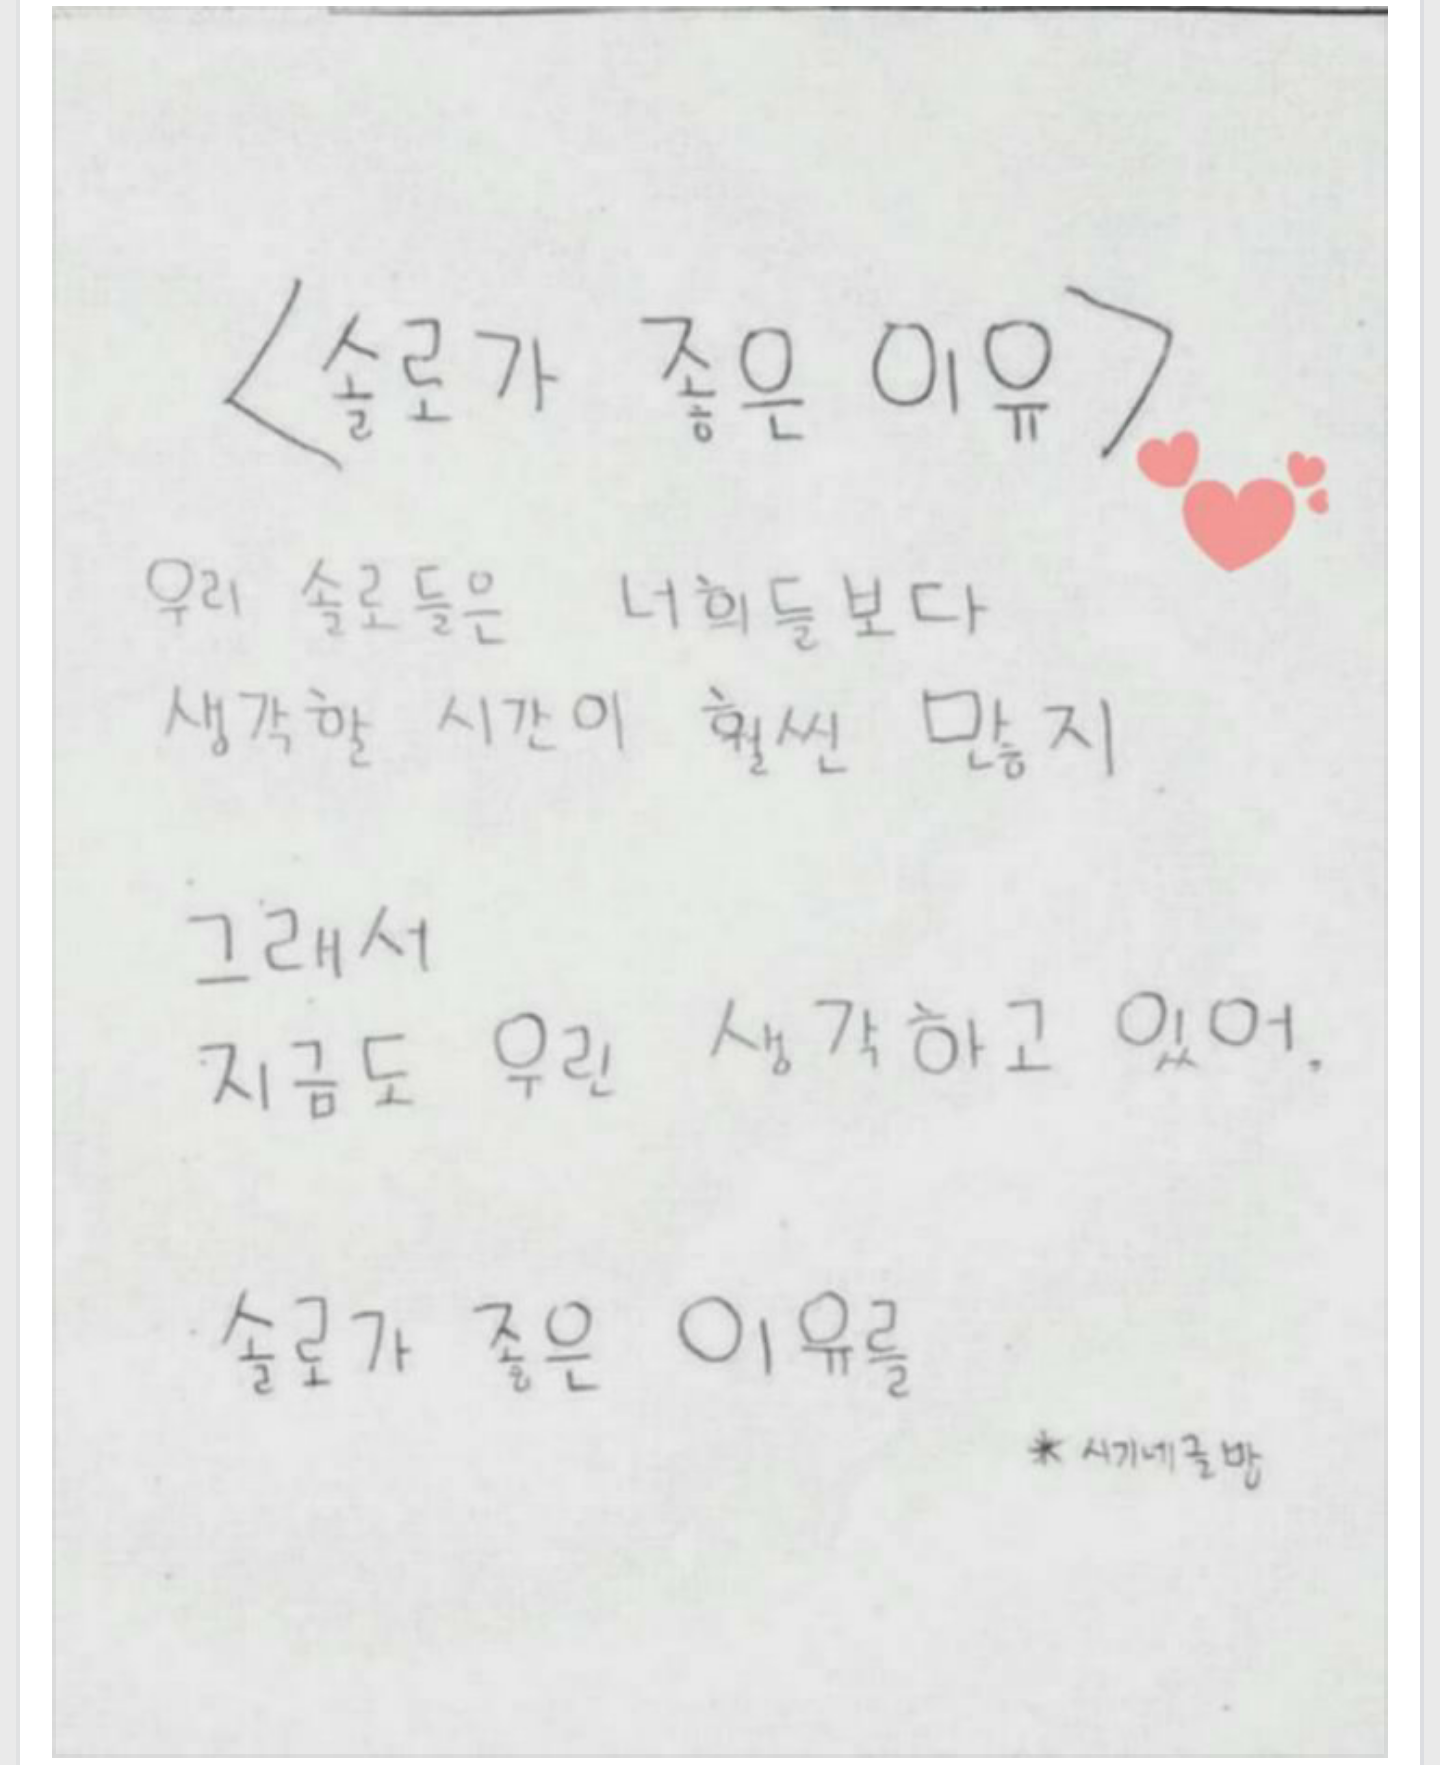 <솔로가 좋은 이유>
우리 솔로들은 너희들보다
생각할 시간이 훨씬 많지
그래서
지금도 우린 생각하고 있어.
솔로가 좋은 이유를
* 시기네글밥